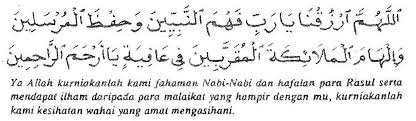 اَللّٰهُمَّ ارْزُقْنَا يَارَبِّ فَهْمَ النَّبِيِّيْنَ وَحِفْظَ الْمُرْسَلِيْنَ
وَاِلْهَامَ الْمَلَائِكَةِ الْمُقَرَّبِيْنَ فِيْ عَافِيَةٍ يَااَرْحَمَ الرَّاحِمِيْنَ
Ya Allah kurniakanlah kami fahaman Nabi-Nabi dan hafalan para Rasul serta
mendapat ilham daripada para malaikat yang hampir dengan mu, kurniakanlah
kami kesihatan wahai yang amat mengasihani.